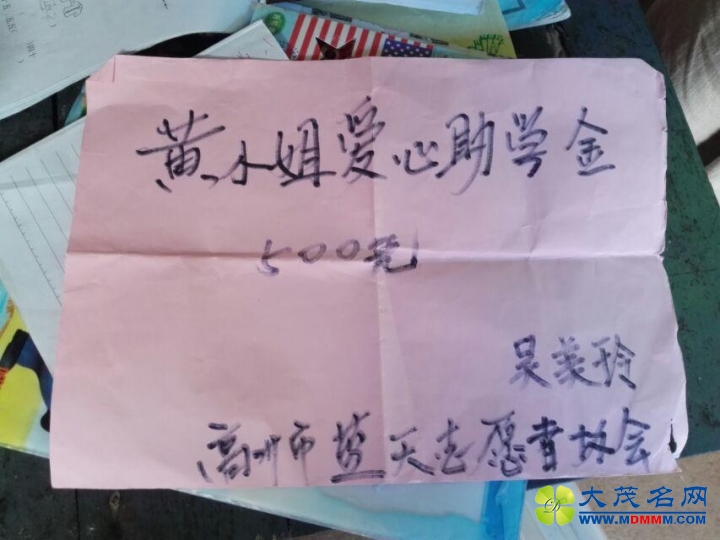 黄小姐爱心助学金
500元
吴美玲
高州市蓝天志愿者协会
大茂名网
WWW.MDMMM.COM